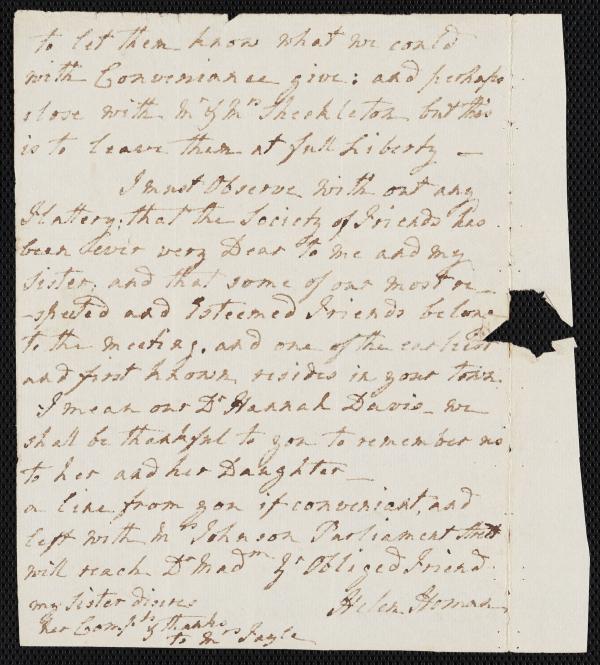 to let them know what we could
with Conveniance give: and perhaps
close with Mr & Mrs Sheckleton but this
is to leave them at full Liberty —
I must Observe with out any
Flattery; that the Society of Friends has
been Ever very Dear to me and my
Sister; and that some of our most re-
-spected and Esteemed Friends belong
to the meeting, and one of the earliest
and first known resides in your town
I mean our Dr Hannah Davis — we
shall be thankful to you to remember us
to her and her Daughter —
a line from you if conveniant, and
left with Mrs Johnson Parliament Street
will reach Dr Madm Yr Obliged Friend
Helen Homan
my Sister disires
her Compts & thanks
to Mrs Fayle